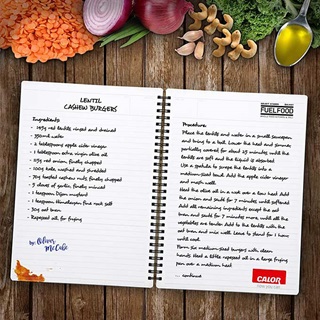 LENTIL
CASHEW BURGERS
Ingredients
- 195g red lentils rinsed and drained
- 350ml water
- 2 tablespoons apple cider vinegar
- 1 tablespoon extra virgin olive oil
- 85g red onion, finely chopped
- 100g kale, washed and shredded
- 70g toasted cashew nuts, finely chopped
- 3 cloves of garlic, finely minced
- 1 teaspoon Dijon mustard
- 1 teaspoon Himalayan fine rock salt
- 30g oat bran
- Rapeseed oil for frying
by Oliver
McCabe
FUELFOOD
Procedure
Place the lentils and water in a small saucepan
and bring to a boil. Lower the heat and simmer
partially covered for about 25 minutes until the
lentils are soft and the liquid is absorbed
Use a spatula to scrape the lentils into a
medium-sized bowl. Add the apple cider vinegar
and mash well.
Heat the olive oil in a wok over a low heat. Add
the onion and sauté for 7 minutes until softened
Add all remaining ingredients except the oat
bran and sauté for 7 minutes more, until all the
vegetables are tender. Add to the lentils with the
oat bran and mix well. Leave to stand for 1 hour
until cool.
Form six medium-sized burgers with clean
hands. Heat a little rapeseed oil in a large frying
pan over a medium heat
... continue
CALOR